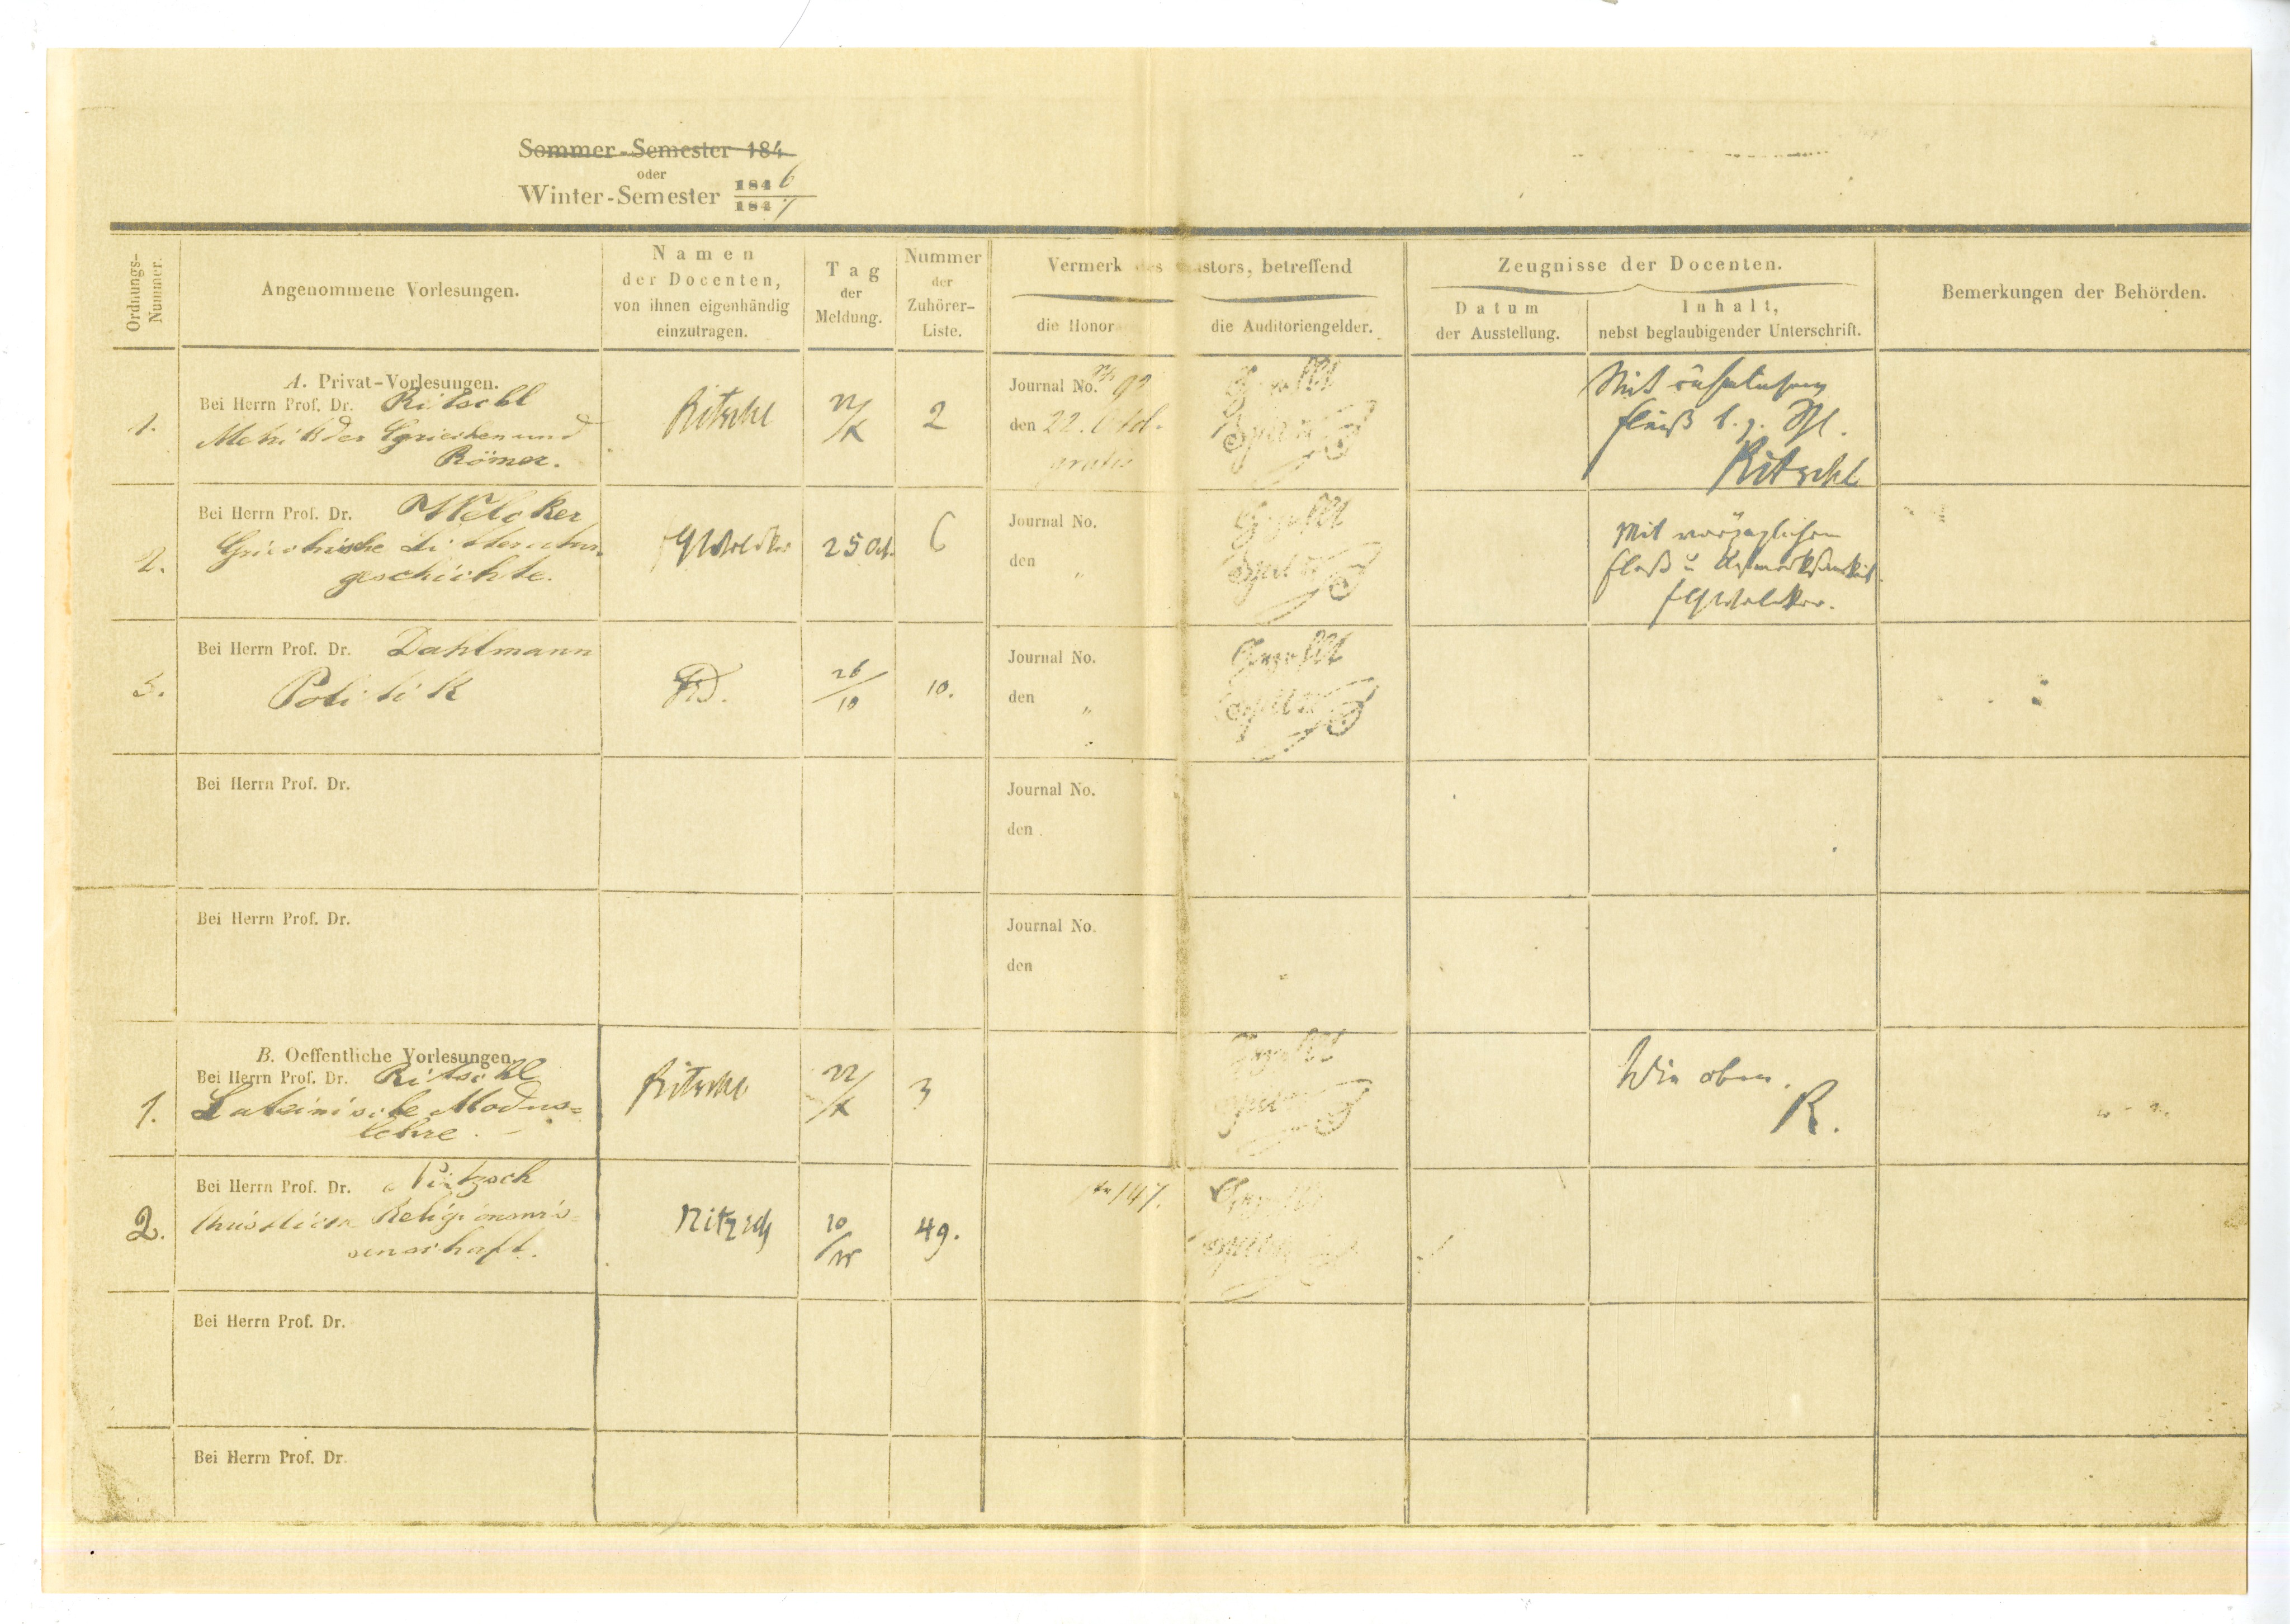 Sommer-Semester 184
oder
Winter-Semester 1846
1847
Ordnungs-Nummer.
Angenommene Vorlesungen.
Namen
der Docenten,
von ihnen eigenhändig
einzutragen.
Tag
der
Meldung.
Nummer
der
Zuhörer-
Liste.
Vermerk des Quästors, betreffend
die Honor
die Auditoriengelder.
Zeugnisse der Docenten.
Datum
der Ausstellung.
Inhalt,
nebst beglaubigender Unterschrift.
Bemerkungen der Behörden.
A. Privat-Vorlesungen.
1.
Bei Herrn Prof. Dr. Ritschl
Metrik der Griechen und
Römer.
Ritschl
22/X
2
Journal No. 92
den 22. Octob.
gratis
Gezahlt
Mit rühmlichem
Fleiß
Ritschl
2.
Bei Herrn Prof. Dr. Welcker
Griechische Litteratur
geschichte.
FGWelcker
25 Oct.
6
Journal No.
den "
Gezahlt
Mit vorzüglichem
Fleiß u Aufmerksamkeit.
FGWelcker.
3.
Bei Herrn Prof. Dr. Dahlmann
Politik
FD.
26/10
10.
Journal No.
den "
Gezahlt
Bei Herrn Prof. Dr.
Journal No.
den
Bei Herrn Prof. Dr.
Journal No.
den
B. Oeffentliche Vorlesungen.
1.
Bei Herrn Prof. Dr. Ritschl
Lateinische Modus=
lehre.
Ritschl
22/X
3
Gezahlt
Wie oben.
R.
2.
Bei Herrn Prof. Dr. Nitzsch
Christliche Religionswis=
senschaft.
Nitzsch
10/
49.
147.
Gezahlt
Bei Herrn Prof. Dr.
Bei Herrn Prof. Dr.